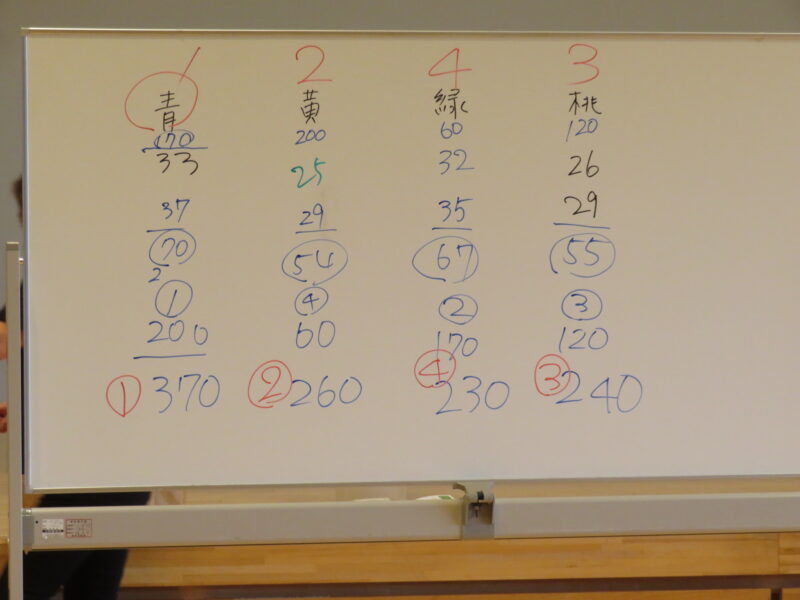 1 2 4 3
青 黄 緑 桃
170 200 60 120
33 25 32 26
37 29 35 29
70 54 67 55
2
① ④ ② ③
200 60 170 120
①370 ②260 ④230 ③240